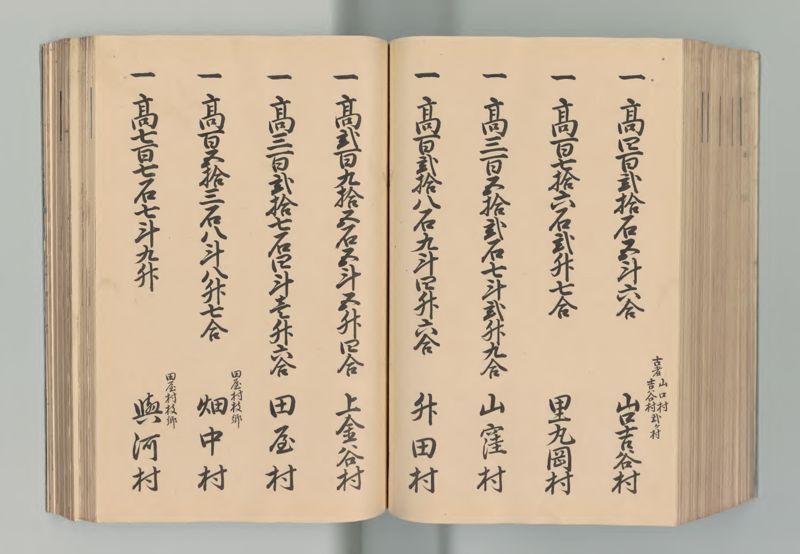 一 高四百弐拾石五斗六合
古者 山口村 吉谷村 弐ケ村
山口吉谷村
一 高百七拾六石弐升七合
里九岡村
一 高三百五拾弐石七斗弐升九合
山窪村
一 高百弐拾八石九斗四升六合
升田村
一 高弐百九拾五石五斗五升四合
上金谷村
一 高三百弐拾七石四斗壱升六合
田屋村
一 高百五拾三石八斗八升七合
田屋村枝郷
畑中村
一 高七百七石七斗九升
田屋村枝郷
與河村